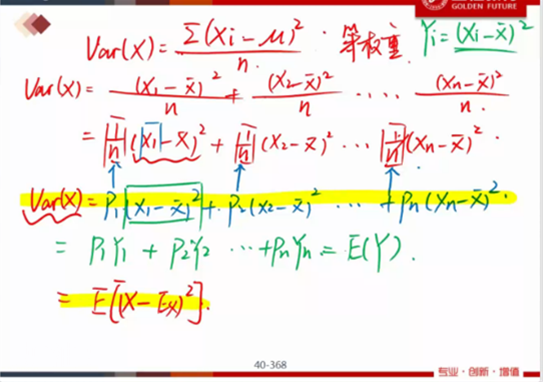 GOLDEN FUTURE
Var(X) = Σ(Xi-μ)²/n . 等权重. Yi = (Xi-x̄)²
Var(X) = (X1-x̄)²/n + (X2-x̄)²/n ..... (Xn-x̄)²/n.
= 1/n (X1-x̄)² + 1/n (X2-x̄)² ... 1/n (Xn-x̄)².
Var(X) = P1 (X1-x̄)² + P2 (X2-x̄)² ... + Pn (Xn-x̄)².
= P1Y1 + P2Y2 ... + PnYn = E(Y).
= E[(X-Ex)²].
40-368
专业·创新·增值